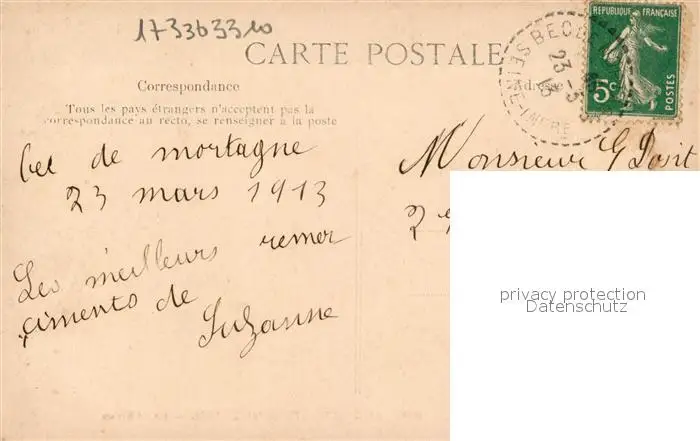 1733633310
CARTE POSTALE
RÉPUBLIQUE FRANÇAISE
5c
POSTES
BEC DE
23-3
13
SEINE-INFRE
Correspondance
Adresse
Tous les pays étrangers n'acceptent pas la
correspondance au recto, se renseigner à la poste
Bec de mortagne
23 mars 1913
Les meilleurs remer
ciments de
Suzanne
Monsieur G
privacy protection
Datenschutz